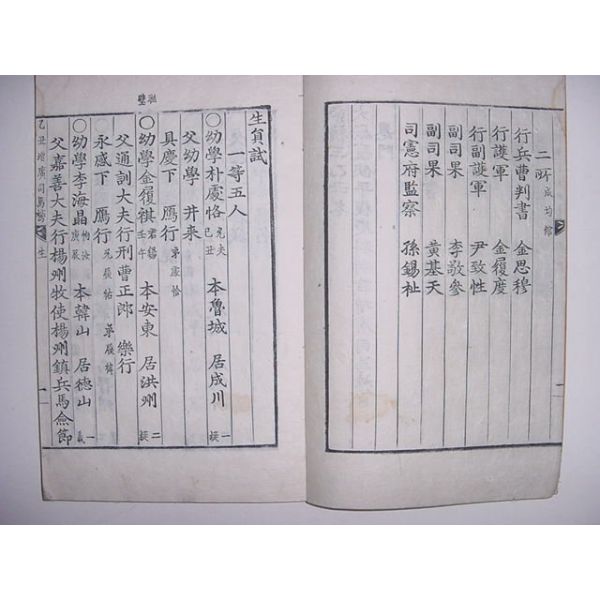 二所 成均館
行兵曹判書 金思穆
行護軍 金履度
行副護軍 尹致性
副司果 李敬參
副司果 黃基天
司憲府監察 孫錫祉
生員試
一等五人
○幼學朴處恪 己丑 本魯城 居成川
父幼學 井來
具慶下 鴈行
○幼學金履祺 壬午 本安東 居洪州 二
父通訓大夫行刑曹正郎 樂行
永感下 鴈行
○幼學李海晶 庚辰 本韓山 居德山
父嘉善大夫行楊州牧使楊州鎮兵馬僉節
乙丑增廣司馬榜 生 一